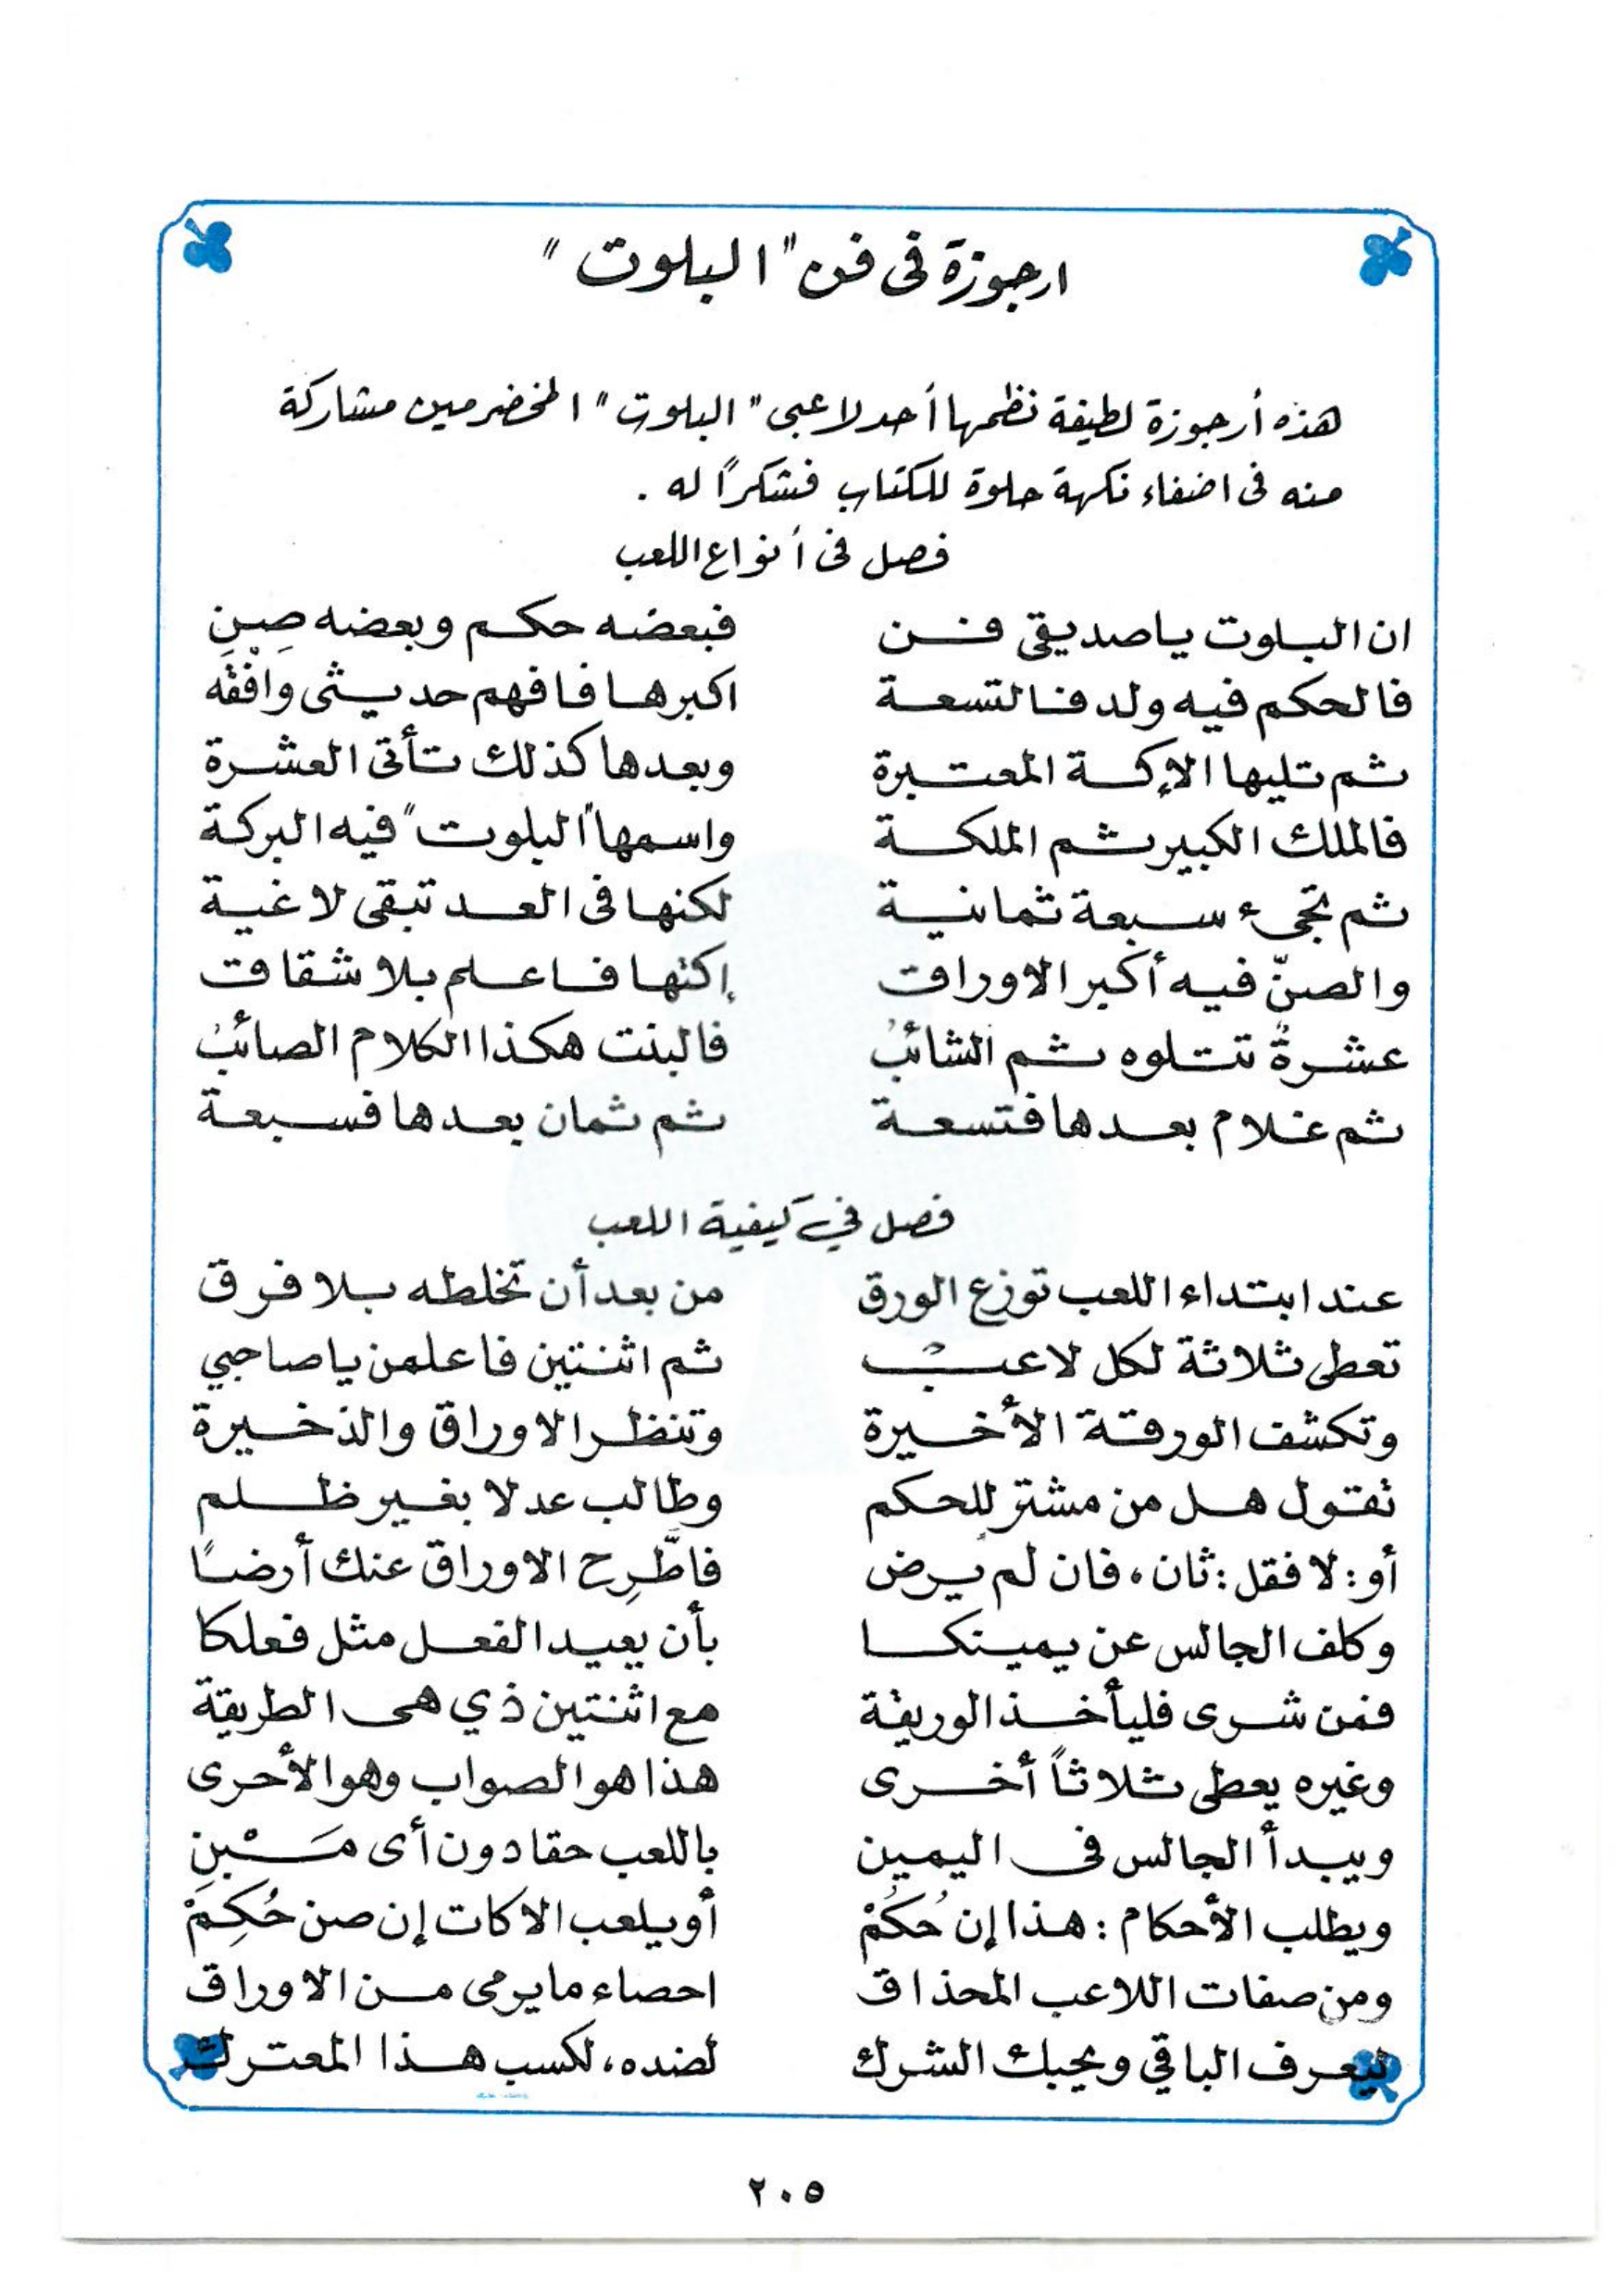 ارجوزة فى فن "البلوت"
هذه أرجوزة لطيفة نظمها أحد لاعبى "البلوت" المخضرمين مشاركة
منه فى اضفاء نكهة حلوة للكتاب فشكراً له .
فصل فى أنواع اللعب
ان البلوت ياصديقى فن فبعضه حكم وبعضه صِنِ
فالحكم فيه ولد فالتسعة اكبرها فافهم حديثى وافْقَه
ثم تليها الإكة المعتبرة وبعدها كذلك تأتى العشرة
فالملك الكبير ثم الملكة واسمها "البلوت" فيه البركة
ثم تجىء سبعة ثمانية لكنها فى العد تبقى لاغية
والصنّ فيه أكبر الاوراق إكتها فاعلم بلا شقاق
عشرةٌ تتلوه ثم الشائبُ فالبنت هكذا الكلام الصائبُ
ثم غلام بعدها فتسعة ثم ثمان بعدها فسبعة
فصل في كيفية اللعب
عند ابتداء اللعب توزع الورق من بعد أن تخلطه بلا فرق
تعطى ثلاثة لكل لاعب ثم اثنتين فاعلمن ياصاحبي
وتكشف الورقة الأخيرة وتنظر الاوراق والذخيرة
تقول هل من مشتر للحكم وطالب عدلا بغير ظلم
أو: لا فقل: ثان، فان لم يرض فاطَّرِح الاوراق عنك أرضاً
وكلف الجالس عن يمينكا بأن يعيد الفعل مثل فعلكا
فمن شرى فليأخذ الوريقة مع اثنتين ذي هى الطريقة
وغيره يعطى ثلاثاً أخرى هذا هو الصواب وهو الأحرى
ويبدأ الجالس فى اليمين باللعب حقا دون أى مَيْنِ
ويطلب الأحكام : هذا إن حُكِمْ أو يلعب الاكات إن صن حُكِمَْ
ومن صفات اللاعب المحذاق احصاء مايرمى من الاوراق
ليعرف الباقي ويحبك الشرك لضده، لكسب هذا المعترك
٢٠٥